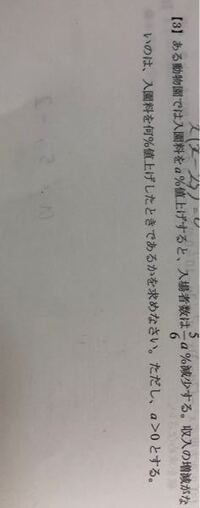 x(x-2y)=0
【3】ある動物園では入園料をa%値上げすると、入場者数は5/6a%減少する。収入の増減がな
いのは、入園料を何%値上げしたときであるかを求めなさい。ただし、a>0とする。